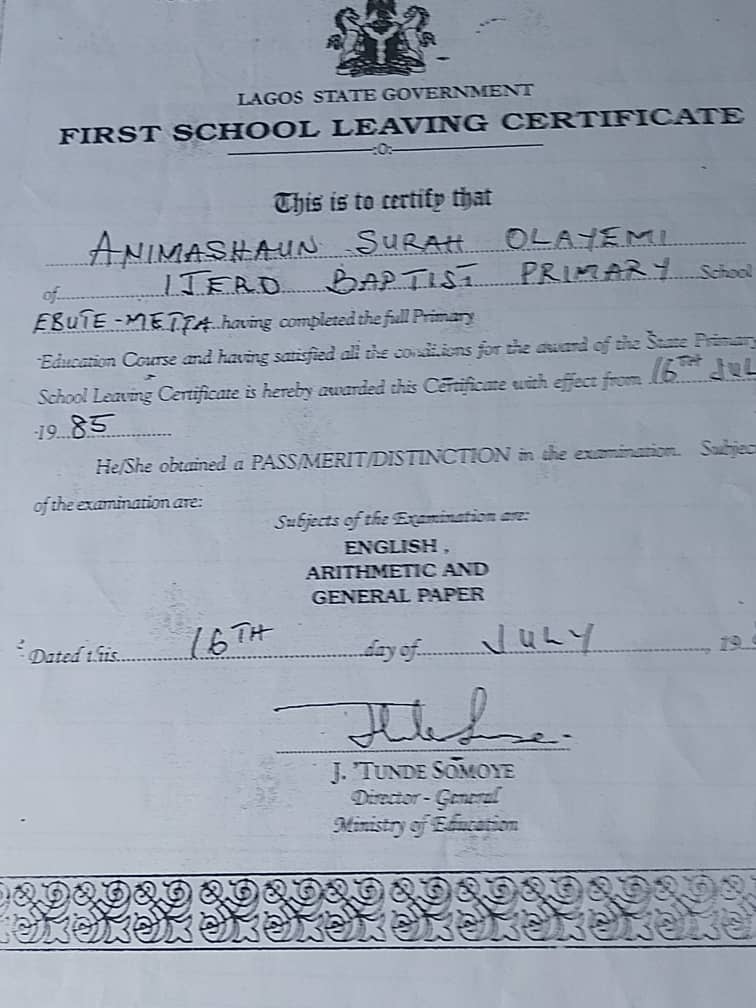 LAGOS STATE GOVERNMENT
FIRST SCHOOL LEAVING CERTIFICATE
:0:
This is to certify that
ANIMASHAUN SURAH OLAYEMI
of IJERO BAPTIST PRIMARY School
EBUTE-METTA having completed the full Primary
Education Course and having satisfied all the conditions for the award of the State Primary
School Leaving Certificate is hereby awarded this Certificate with effect from 16TH JUL
19 85
He/She obtained a PASS/MERIT/DISTINCTION in the examination. Subjec
of the examination are:
Subjects of the Examination are:
ENGLISH,
ARITHMETIC AND
GENERAL PAPER
Dated this 16TH day of JULY, 19
J. 'TUNDE SOMOYE
Director - General
Ministry of Education